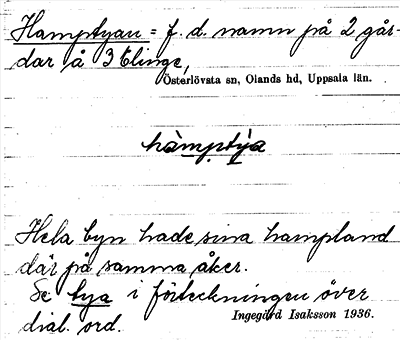 Hamptyan = f. d. namn på 2 går-
dar å 3 Elinge,
Österlövsta sn, Olands hd, Uppsala län.
hàmptỳa
Hela byn hade sina hampland
där på samma åker.
Se tya i förteckningen över
dial. ord.
Ingegärd Isaksson 1936.